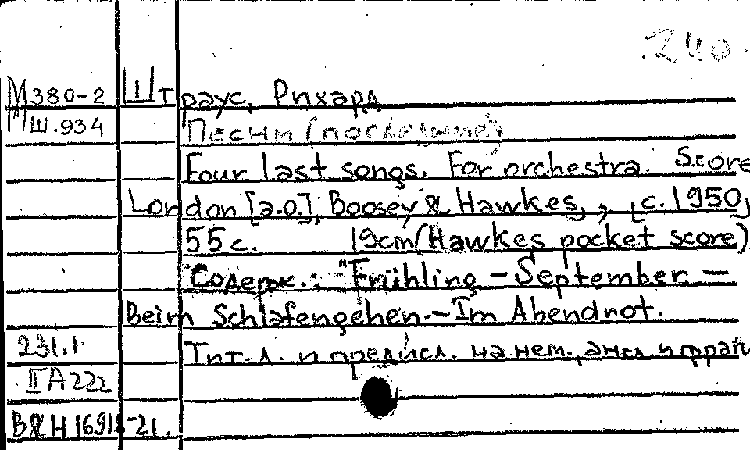 240
М380-2 Штраус, Рихард
Ш.934 Песни (последние)
Four last songs. For orchestra. Score
London [a.o.], Boosey & Hawkes, , [c. 1950,
55 с. 19cm (Hawkes pocket score)
Содерж.: "Frühling – September –
Beim Schlafengehen. – Im Abendrot.
231.1 Тит. л. и предисл. на нем., англ. и фран
II A 222
B&H 16918-21.